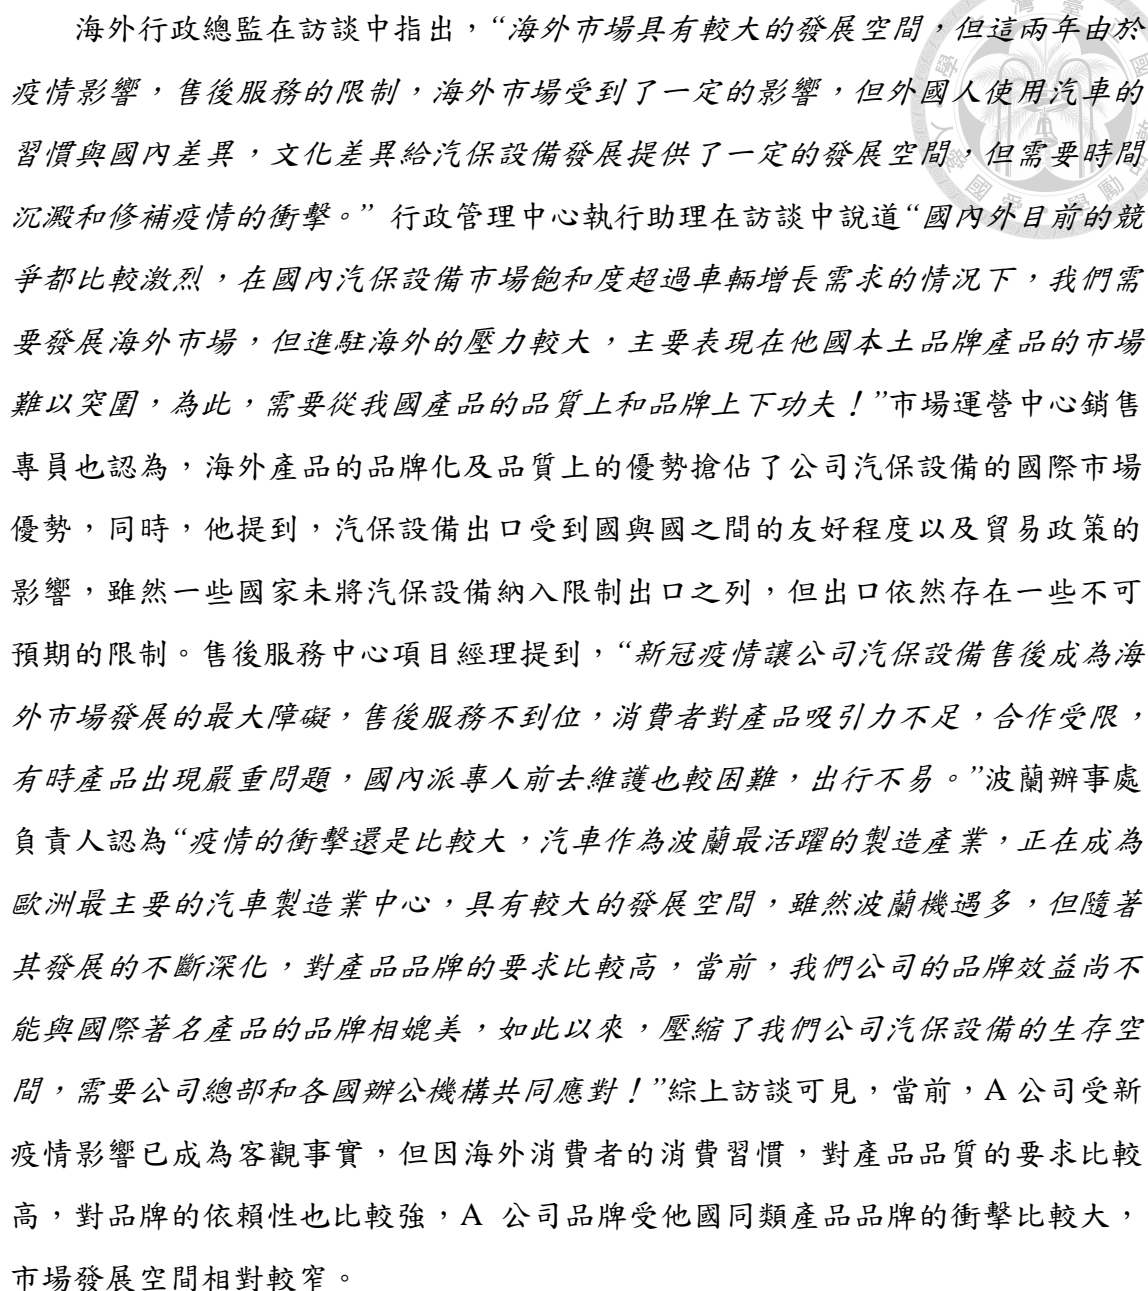 海外行政總監在訪談中指出，“海外市場具有較大的發展空間，但這兩年由於
疫情影響，售後服務的限制，海外市場受到了一定的影響，但外國人使用汽車的
習慣與國內差異，文化差異給汽保設備發展提供了一定的發展空間，但需要時間
沉澱和修補疫情的衝擊。” 行政管理中心執行助理在訪談中說道“國內外目前的競
爭都比較激烈，在國內汽保設備市場飽和度超過車輛增長需求的情況下，我們需
要發展海外市場，但進駐海外的壓力較大，主要表現在他國本土品牌產品的市場
難以突圍，為此，需要從我國產品的品質上和品牌上下功夫！”市場運營中心銷售
專員也認為，海外產品的品牌化及品質上的優勢搶佔了公司汽保設備的國際市場
優勢，同時，他提到，汽保設備出口受到國與國之間的友好程度以及貿易政策的
影響，雖然一些國家未將汽保設備納入限制出口之列，但出口依然存在一些不可
預期的限制。售後服務中心項目經理提到，“新冠疫情讓公司汽保設備售後成為海
外市場發展的最大障礙，售後服務不到位，消費者對產品吸引力不足，合作受限，
有時產品出現嚴重問題，國內派專人前去維護也較困難，出行不易。”波蘭辦事處
負責人認為“疫情的衝擊還是比較大，汽車作為波蘭最活躍的製造產業，正在成為
歐洲最主要的汽車製造業中心，具有較大的發展空間，雖然波蘭機遇多，但隨著
其發展的不斷深化，對產品品牌的要求比較高，當前，我們公司的品牌效益尚不
能與國際著名產品的品牌相媲美，如此以來，壓縮了我們公司汽保設備的生存空
間，需要公司總部和各國辦公機構共同應對！”綜上訪談可見，當前，A 公司受新
疫情影響已成為客觀事實，但因海外消費者的消費習慣，對產品品質的要求比較
高，對品牌的依賴性也比較強，A 公司品牌受他國同類產品品牌的衝擊比較大，
市場發展空間相對較窄。